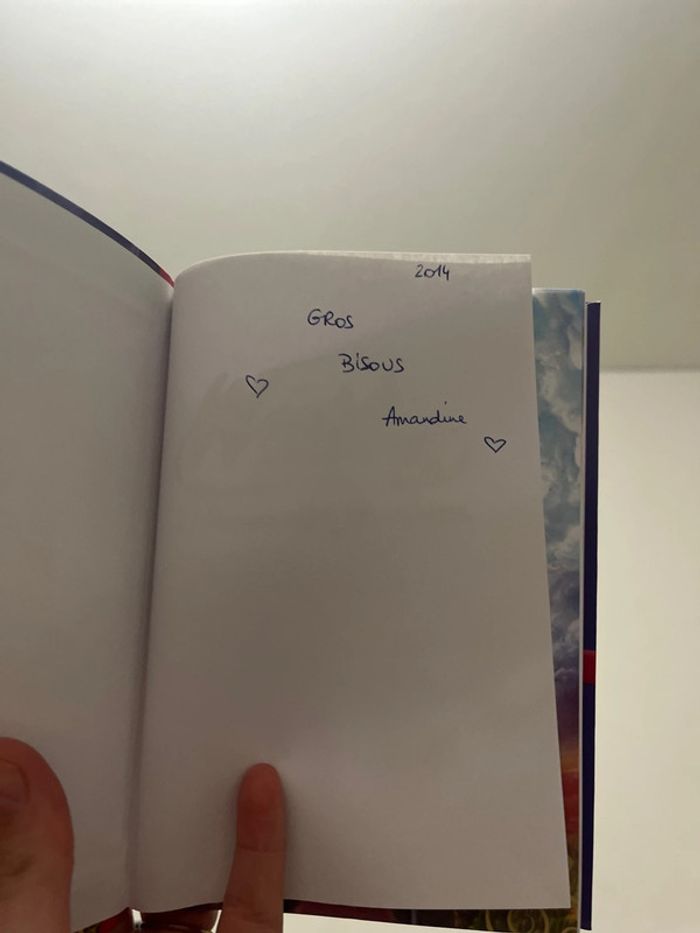 2014
GROS
BISOUS
Amandine